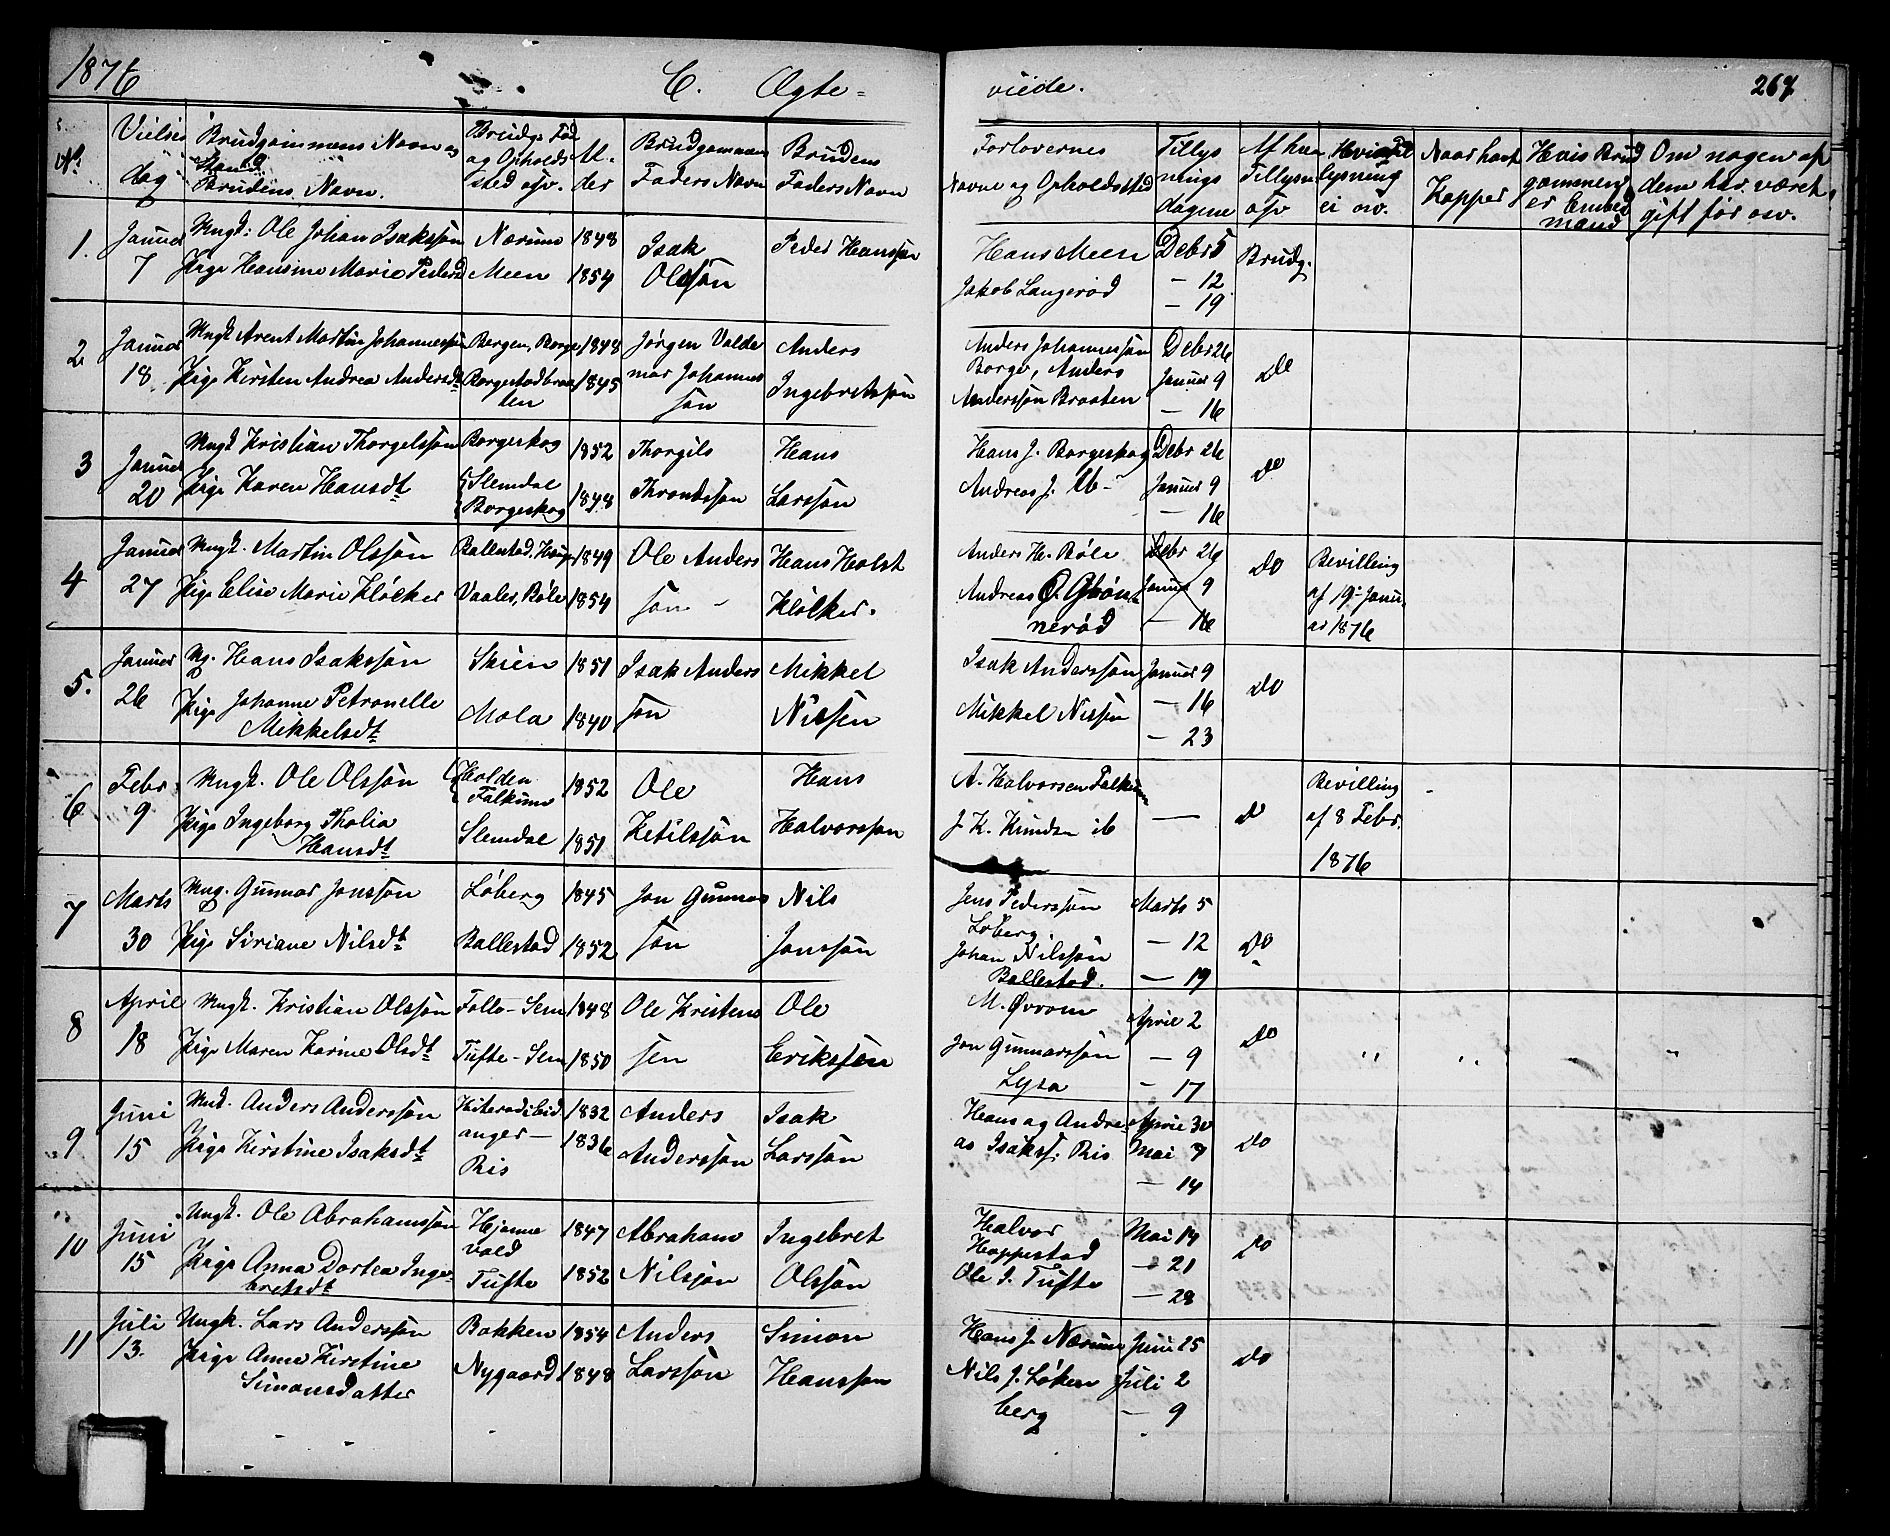 1876
C. Ægte-
viede.
267
No.
Vielses
dag
Brudgommens Navn og
Stand
Brudens Navn.
Brudg. Fød
og Opholds
sted osv.
Al-
der
Brudgommens
Faders Navn
Brudens
Faders Navn
Forlovernes
Navne og Opholdssted
Tillys
nings
dagene
Af hvem
Tillysn
osv
Hvis Til
lysning
ei osv.
Naar havt
Kopper
Hvis Brud
gommen
er Embed
mand
Om nogen af
dem har været
gift før osv.
1.
Januar
7
Ungk: Ole Johan Isakssøn
Pige Hansine Marie Pedersd
Nærum
Meen
1848
1854
Isak
Olssøn
Peder Hanssøn
Hans Meen
Jakob Langerød
Debr 5
— 12
— 19
Brudg.
2
Januar
18
Ungk Arent Martin Johannessøn
Pige Kirsten Andrea Andersdt
Bergen, Borge
Borgestadbraa
ten
1848
1845
Jørgen Valde
mar Johannes
søn
Anders
Ingebretssøn
Anders Johannessøn
Borge, Anders
Anderssøn Braaten
Debr 26
Januar 9
— 16
Do
3
Januar
20
Ungk Kristian Thorgelssøn
Pige Karen Hansdt
Borgeskog
Slemdal
Borgeskog
1852
1848
Thorgils
Throndssøn
Hans
Larssøn
Hans J. Borgeskog
Andreas J. Ib —
Debr 26
Januar 9
— 16
Do
4
Januar
27
Ungk. Martin Olssøn
Pige Elise Marie Kløcker
Ballestad, Haug
Vaaler, Bøle
1849
1854
Ole Anders
søn —
Hans Holst
Kløcker.
Anders H. Bøle
Andreas O. Grøn
nerød
Debr 26
Januar 9
— 16
Do
Bevilling
af 19 Janu
ar 1876
5.
Januar
26
Ug. Hans Isakssøn
Pige Johanne Petronelle
Mikkelsdt
Skien
Mola
1851
1840
Isak Anders
søn
Mikkel
Nissen
Isak Anderssøn
Mikkel Nissen
Januar 9
— 16
— 23
Do
6
Febr
9
Ungk. Ole Olssøn
Pige Ingeborg Tholia
Hansdt
Holden
Falkum
Slemdal
1852
1851
Ole
Ketilssøn
Hans
Halvorssøn
A. Halvorsen Falkum
J. K. Knudsen ib
—
Do
Bevilling
af 8 Febr.
1876
7
Marts
30
Ung. Gunnar Jonssøn
Pige Siriane Nilsdt
Løberg
Ballestad
1845
1852
Jon Gunnar
søn
Nils
Jonssøn
Jens Pederssøn
Løberg
Johan Nilssøn
Ballestad.
Marts 5
— 12
— 19
Do
8
April
18
Ungk. Kristian Olssøn
Pige Maren Karine Olsdt
Follo - Sem
Tufte - Sem
1848
1850
Ole Kristens
sen
Ole
Erikssen
M. Øvrom
Jon Gunnarssøn
Lysa
April 2
— 9
— 17
Do
9
Juni
15
Ung. Anders Anderssøn
Pige Kirstine Isaksdt
anger —
Ris
1832
1836
Anders
Anderssøn
Isak
Larssøn
Hans og Andre-
as Isakss. Ris
April 30
Mai 7
— 14
Do
10
Juni
15
Ungk. Ole Abrahamssøn
Pige Anna Dortea Inge-
bretsdt
Hjemme
vold
Tufte
1847
1852
Abraham
Nilssøn
Ingebret
Olssøn
Halvor
Hoppestad
Ole I. Tufte
Mai 14
— 21
— 28
Do
11
Juli
13.
Ungk. Lars Anderssøn
Pige Anne Kirstine
Simonsdatter
Bakken
Nygaard
1854
1848
Anders
Larssøn
Simon
Hanssøn
Hans J. Nærum
Nils J. Løken
berg
Juni 25
Juli 2
— 9
Do